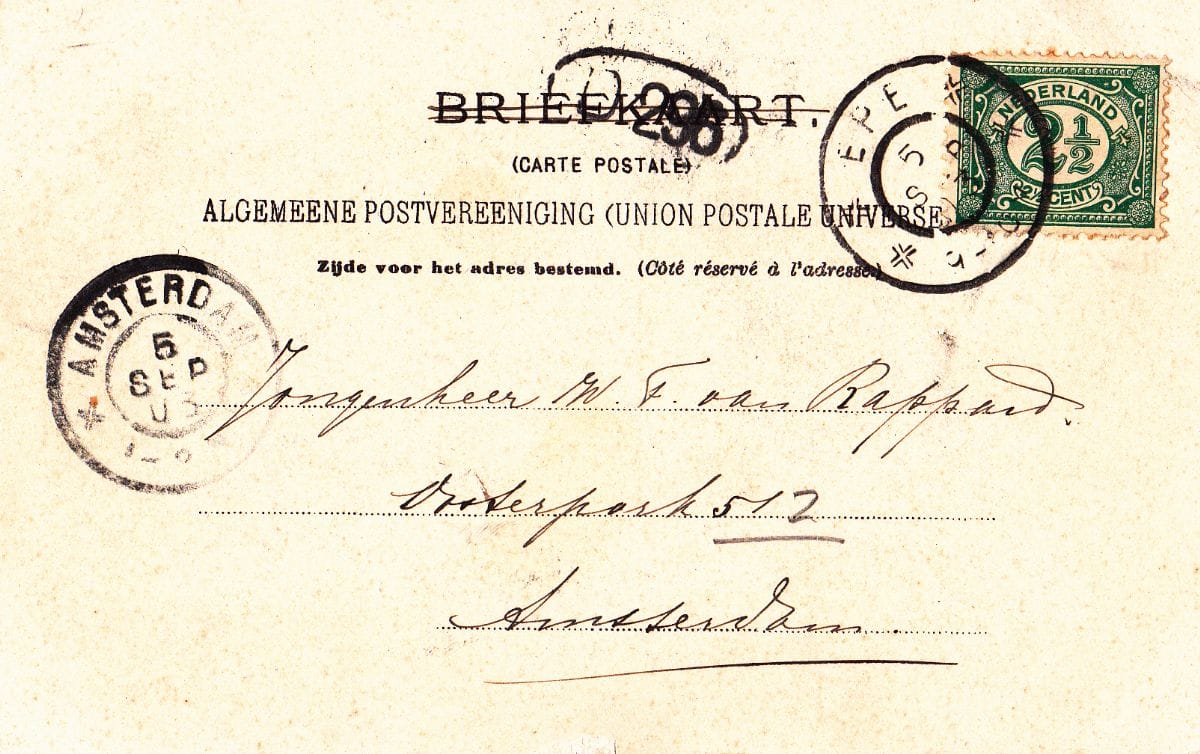 BRIEFKAART.
296
(CARTE POSTALE)
ALGEMEENE POSTVEREENIGING (UNION POSTALE UNIVERSE
Zijde voor het adres bestemd. (Côté réservé à l'adresse.)
EPE
5
NEDERLAND
2½
2½ CENT
AMSTERDAM
5
SEP
Jongenheer W. F. van Rappard.
Oosterpark 512
Amsterdam.